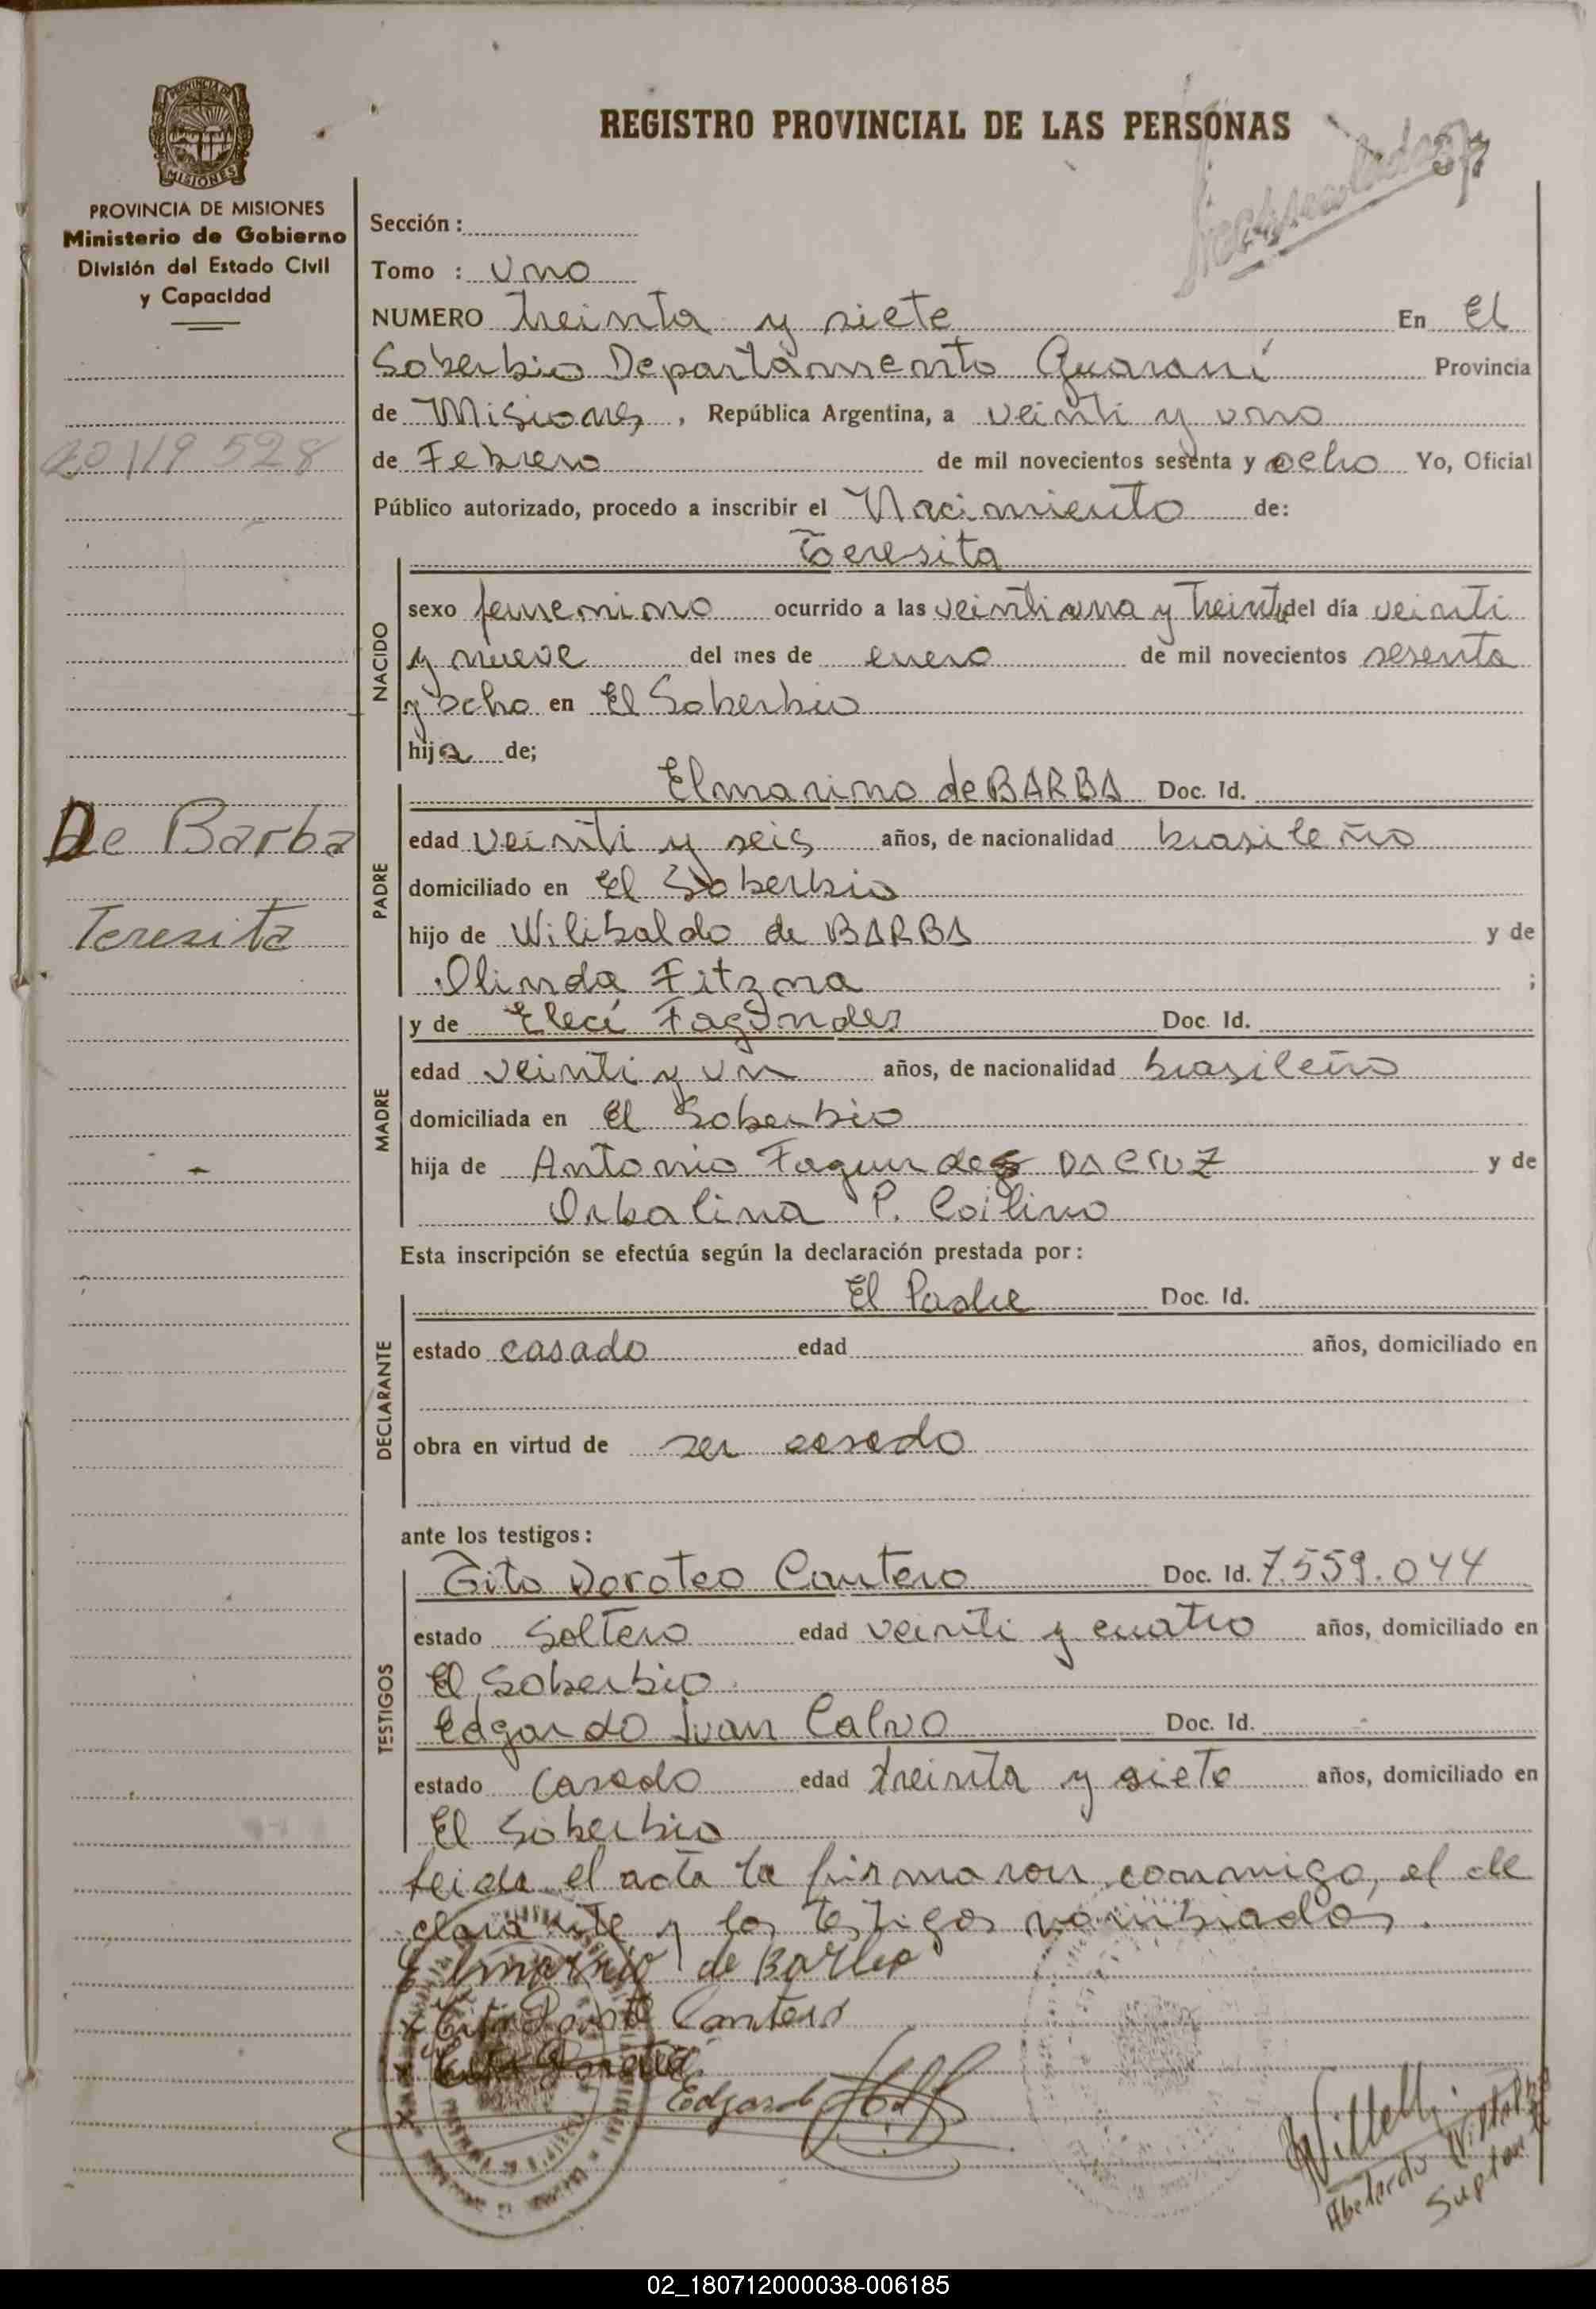 REGISTRO PROVINCIAL DE LAS PERSONAS
37
PROVINCIA DE MISIONES
PROVINCIA DE MISIONES
Ministerio de Gobierno
División del Estado Civil
y Capacidad
Sección :
Tomo : Uno
NUMERO treinta y siete En El
Soberbio Departamento Guaraní Provincia
de Misiones, República Argentina, a veinti y uno
20119 528
de Febrero de mil novecientos sesenta y ocho Yo, Oficial
Público autorizado, procedo a inscribir el Nacimiento de:
Teresita
NACIDO
sexo femenino ocurrido a las veintiuna y treinta del día veinti
y nueve del mes de enero de mil novecientos sesenta
y ocho en El Soberbio
hija de;
Elmarino de BARBA Doc. Id.
De Barba
Teresita
PADRE
edad veinti y seis años, de nacionalidad brasileño
domiciliado en El Soberbio
hijo de Wilibaldo de BARBA y de
Olinda Fitzma ;
MADRE
y de Elecí Fagundes Doc. Id.
edad veinti y un años, de nacionalidad brasileño
domiciliada en El Soberbio
hija de Antonio Fagundes DA CRUZ y de
Orbalina P. Coilino
Esta inscripción se efectúa según la declaración prestada por:
DECLARANTE
El Padre Doc. Id.
estado casado edad años, domiciliado en
obra en virtud de ser casado
ante los testigos:
TESTIGOS
Tito Doroteo Cantero Doc. Id. 7.559.044
estado Soltero edad veinti y cuatro años, domiciliado en
El Soberbio
Edgardo Juan Calvo Doc. Id.
estado Casado edad treinta y siete años, domiciliado en
El Soberbio
Leida el acta la firmaron conmigo, el de
clarante y los testigos nombrados.
Elmarino de Barba
Cantero
Edgardo
Abelardo
Suplente
02_180712000038-006185